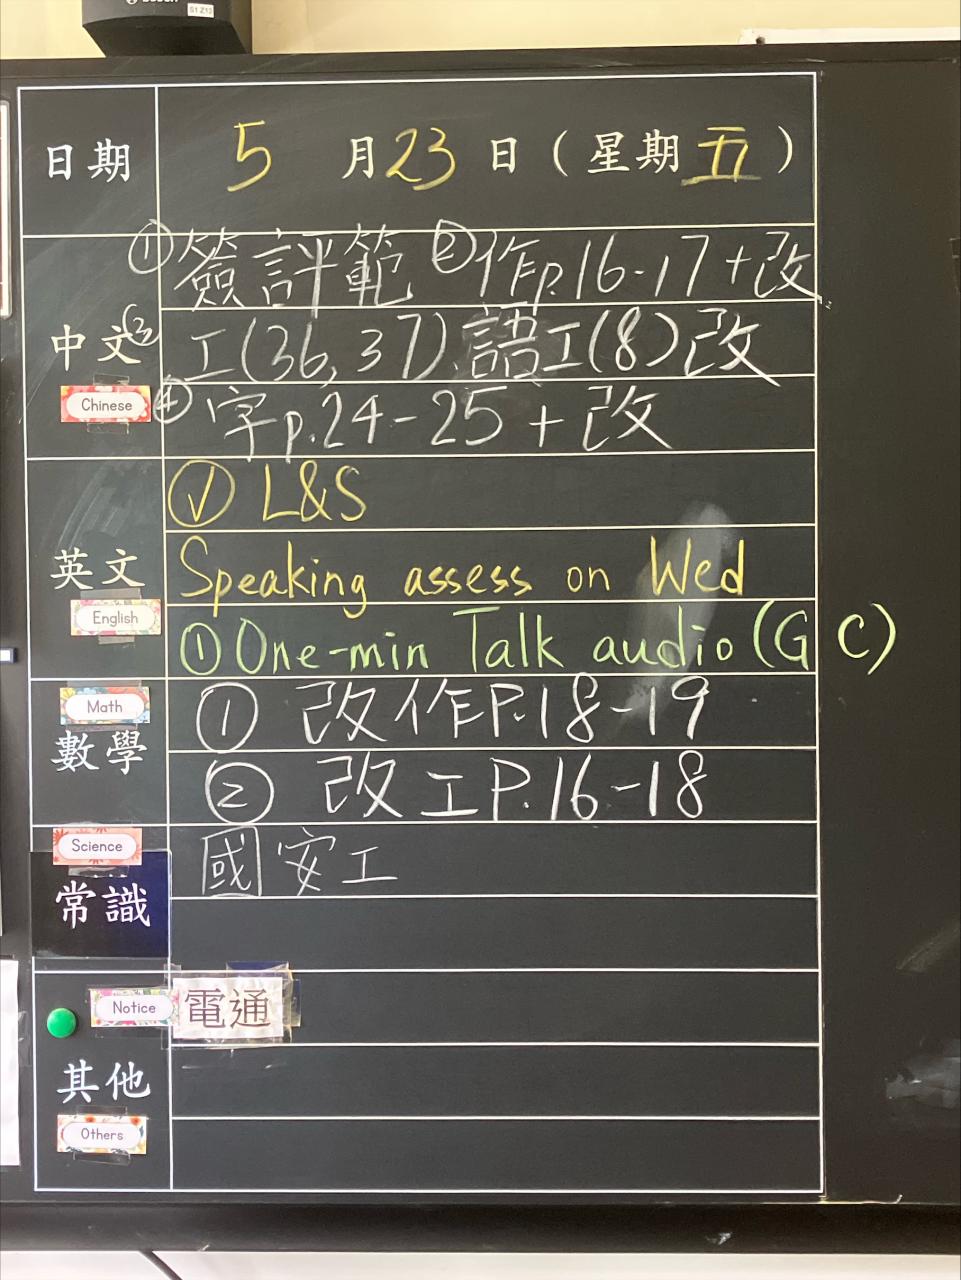 S1 Z12
日期 5 月 23 日 ( 星期 五 )
① 簽評範 ② 作p.16-17 + 改
中文 ③ 工(36, 37), 語工(8)改
Chinese ④ 字p.24-25 + 改
① L&S
英文 Speaking assess on Wed
English ① One-min Talk audio (G C)
Math ① 改作P.18-19
數學 ② 改工P.16-18
Science 國安工
常識
Notice 電通
其他
Others